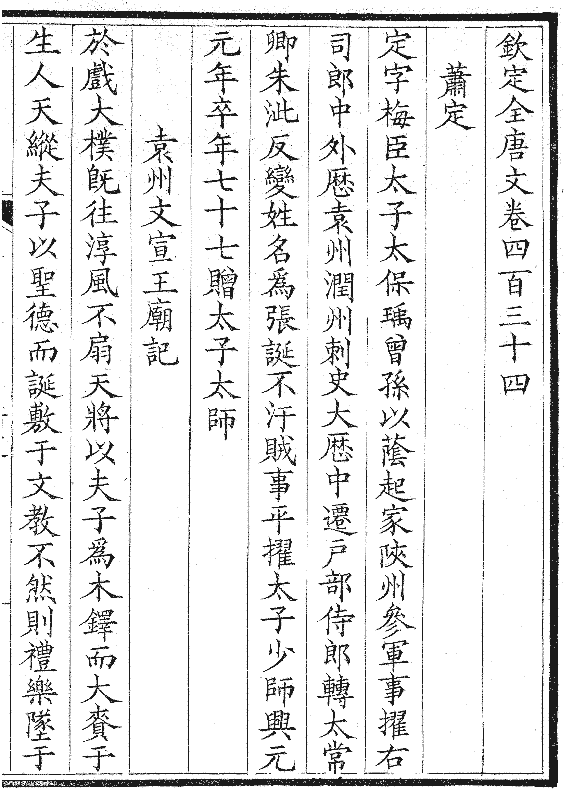 欽定全唐文卷四百三十四
蕭定
定字梅臣太子太保瑀曾孫以蔭起家陜州參軍事擢右
司郎中外厯袁州潤州刺史大厯中遷戸部侍郎轉太常
卿朱泚反變姓名為張誕不汙賊事平擢太子少師興元
元年卒年七十七贈太子太師
袁州文宣王廟記
於戲大樸旣往淳風不扇天將以夫子爲木鐸而大賚于
生人天縱夫子以聖德而誕敷于文教不然則禮樂墜于